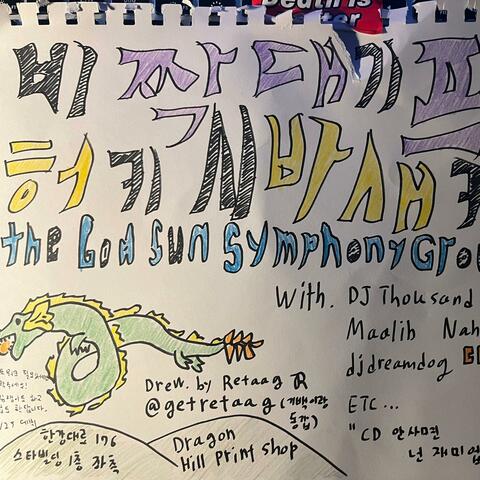 Death is
비 짝 대기
허키 시바새키
the God Sun Symphony Grou
With. DJ Thousand
Maalib Nah
djdreamdog
ETC...
"CD 안사면
넌 재미없
Drew. by Retaag R
@getretaag (기백이랑
동갑)
한강대로 176
스타빌딩 1층 좌측
Dragon
Hill Print Shop